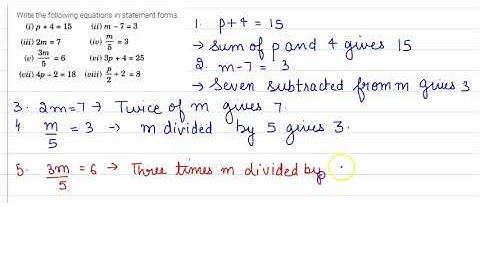 Write the following equations in statement forms.
(i) p + 4 = 15 (ii) m − 7 = 3
(iii) 2m = 7 (iv) m/5 = 3
(v) 3m/5 = 6 (vi) 3p + 4 = 25
(vii) 4p − 2 = 18 (viii) p/2 + 2 = 8
1. p+4 = 15
→ Sum of p and 4 gives 15
2. m-7 = 3
→ Seven subtracted from m gives 3
3. 2m=7 → Twice of m gives 7.
4. m/5 = 3 → m divided by 5 gives 3.
5. 3m/5 = 6 → Three times m divided by